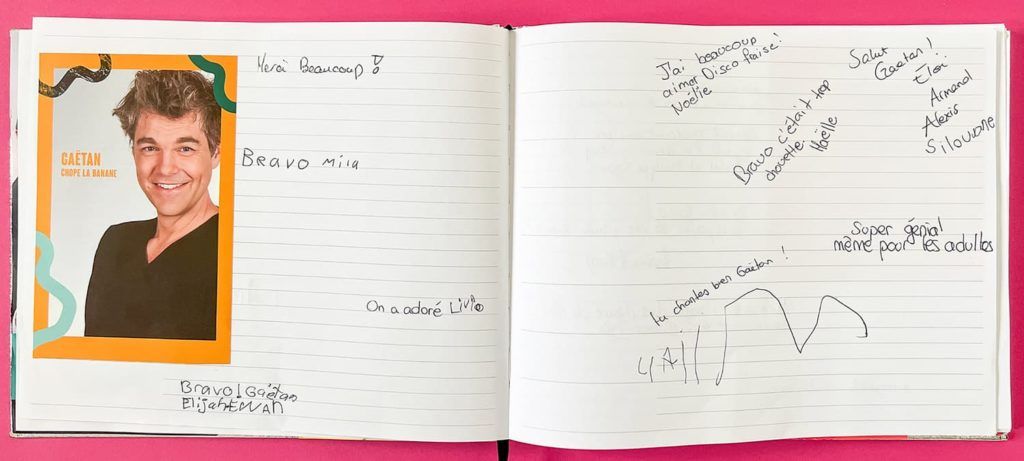 GAËTAN
CHOPE LA BANANE
Merci Beaucoup !
Bravo Mila
On a adoré Livio
Bravo! Gaëtan
Elijah EWAN
J'ai beaucoup
aimer Disco fraise!
Noélie
Salut
Gaëtan !
Éloi
Armand
Alexis
Silouane
Bravo c'était trop
chouette. Haëlle
Super génial
même pour les adultes
tu chantes bien Gaëtan !